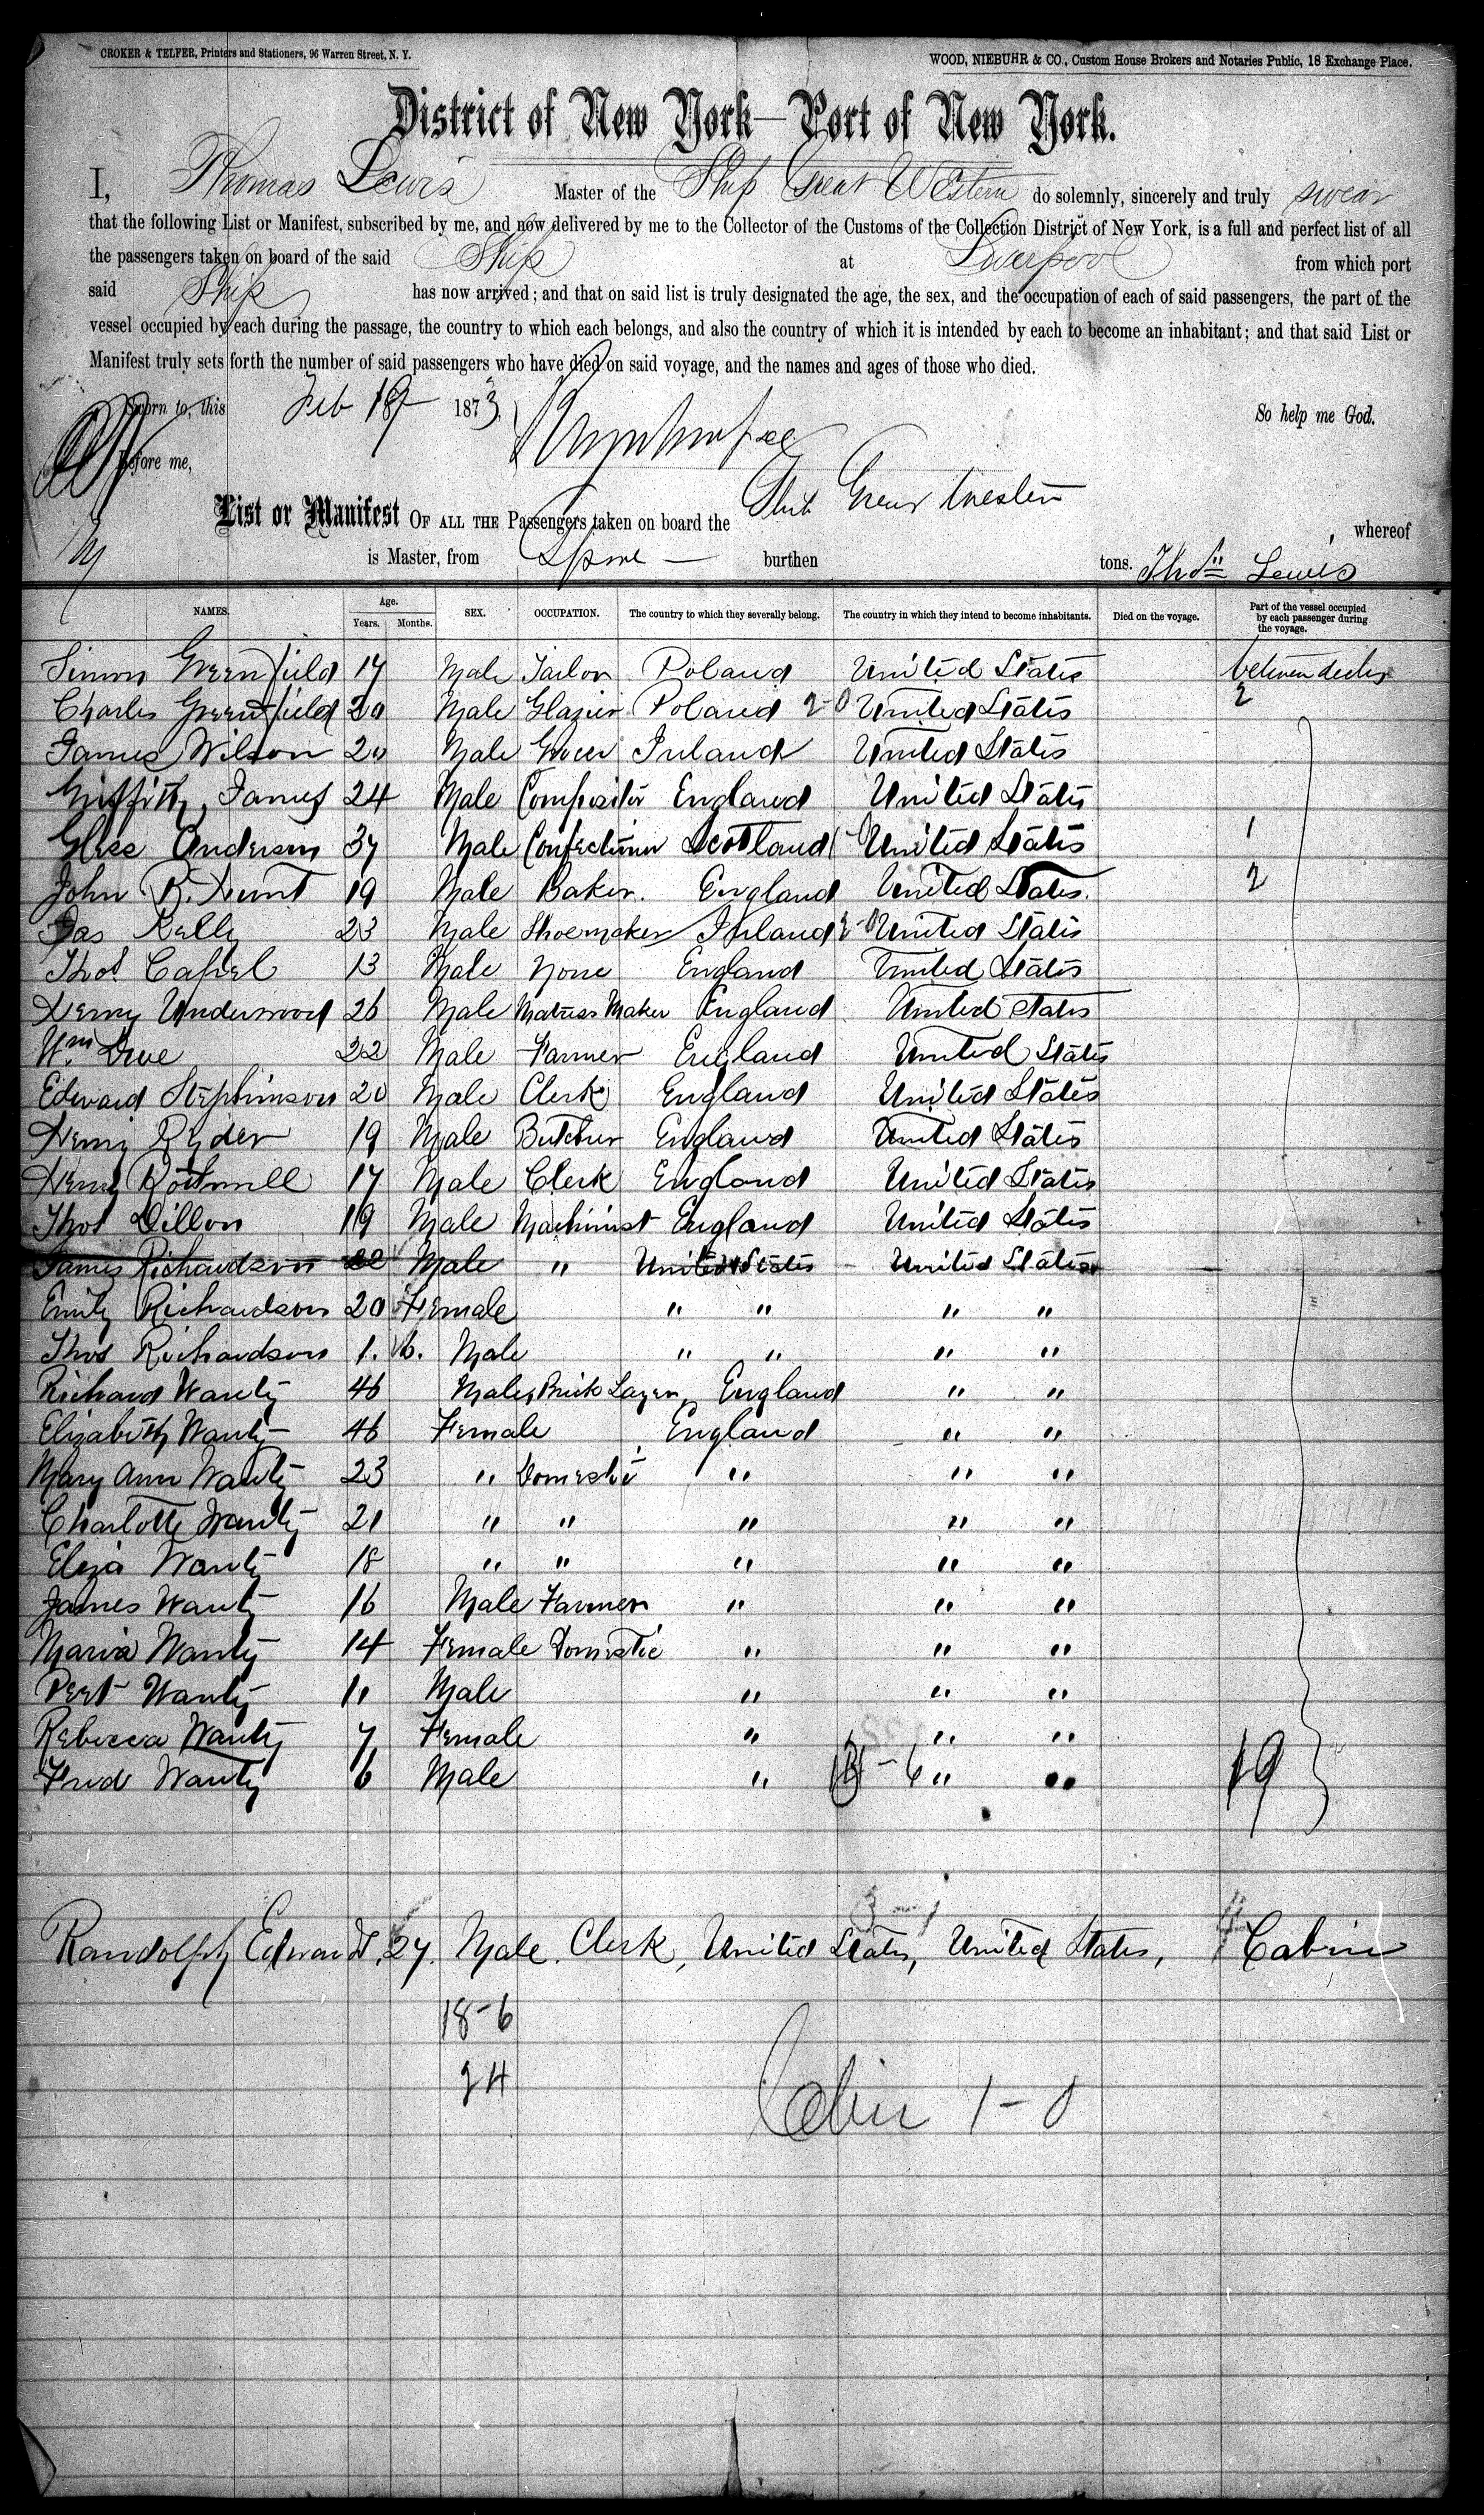 CROKER & TELFER, Printers and Stationers, 96 Warren Street, N. Y.
WOOD, NIEBUHR & CO., Custom House Brokers and Notaries Public, 18 Exchange Place.
District of New York—Port of New York.
I, Thomas Lewis Master of the Ship Great Western do solemnly, sincerely and truly swear
that the following List or Manifest, subscribed by me, and now delivered by me to the Collector of the Customs of the Collection District of New York, is a full and perfect list of all
the passengers taken on board of the said Ship at Liverpool from which port
said Ship has now arrived; and that on said list is truly designated the age, the sex, and the occupation of each of said passengers, the part of the
vessel occupied by each during the passage, the country to which each belongs, and also the country of which it is intended by each to become an inhabitant; and that said List or
Manifest truly sets forth the number of said passengers who have died on said voyage, and the names and ages of those who died.
Sworn to, this Feb 18 1873 So help me God.
Before me,
List or Manifest OF ALL THE Passengers taken on board the Ship Great Western whereof
is Master, from Lpool — burthen tons. Thos Lewis
NAMES. Age. Years. Months. SEX. OCCUPATION. The country to which they severally belong. The country in which they intend to become inhabitants. Died on the voyage. Part of the vessel occupied by each passenger during the voyage.
Simon Greenfield 17 Male Tailor Poland United States between decks
Charles Greenfield 20 Male Glazier Poland 2-0 United States 2
James Wilson 20 Male Grocer Ireland United States
Griffith, James 24 Male Compositor England United States
Anderson 37 Male Confectioner Scotland United States 1
John R. Hunt 19 Male Baker. England United States. 2
Jas Kelly 23 Male Shoemaker Ireland United States
Thos Capel 13 Male None England United States
Henry Underwood 26 Male Matress Maker England United States
Wm 22 Male Farmer England United States
Edward Stephinson 20 Male Clerk England United States
Henry Ryder 19 Male Butcher England United States
Henry Rothwell 17 Male Clerk England United States
Thos Dillon 19 Male Machinist England United States
James Richardson 22 Male " United States United States
Emily Richardson 20 Female " " " "
Thos Richardson 1. 6. Male " " " "
Richard Wanty 46 Male, Brick Layer, England " "
Elizabeth Wanty 46 Female England " "
Mary Ann Wanty 23 " Domestic " " "
Charlotte Wanty 21 " " " " "
Eliza Wanty 18 " " " " "
James Wanty 16 Male Farmer " " "
Maria Wanty 14 Female Domestic " " "
Bert Wanty 11 Male " " "
Rebecca Wanty 7 Female " " "
Fred Wanty 6 Male " - 6 " " 19
3-1
Randolph Edward, 27. Male. Clerk, United States, United States, Cabin
18-6
24
Cabin 1-0